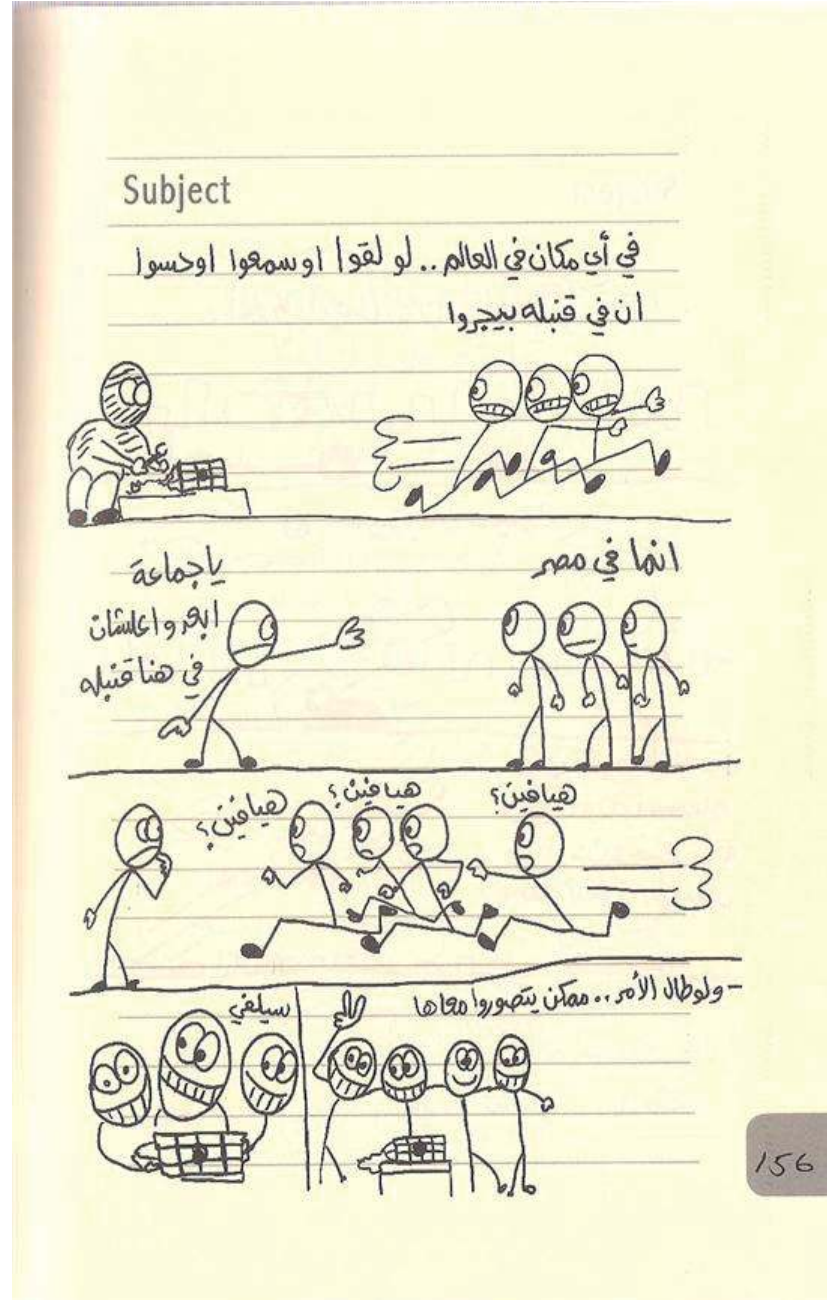 Subject
في أي مكان في العالم.. لو لقوا او سمعوا او حسوا
ان في قنبله بيجروا
انما في مصر
ياجماعة
ابعدوا علشان
في هنا قنبله
هيا فين؟
هيا فين؟
هيا فين؟
- ولو طال الأمر.. ممكن يتصوروا معاها
سيلفي
156